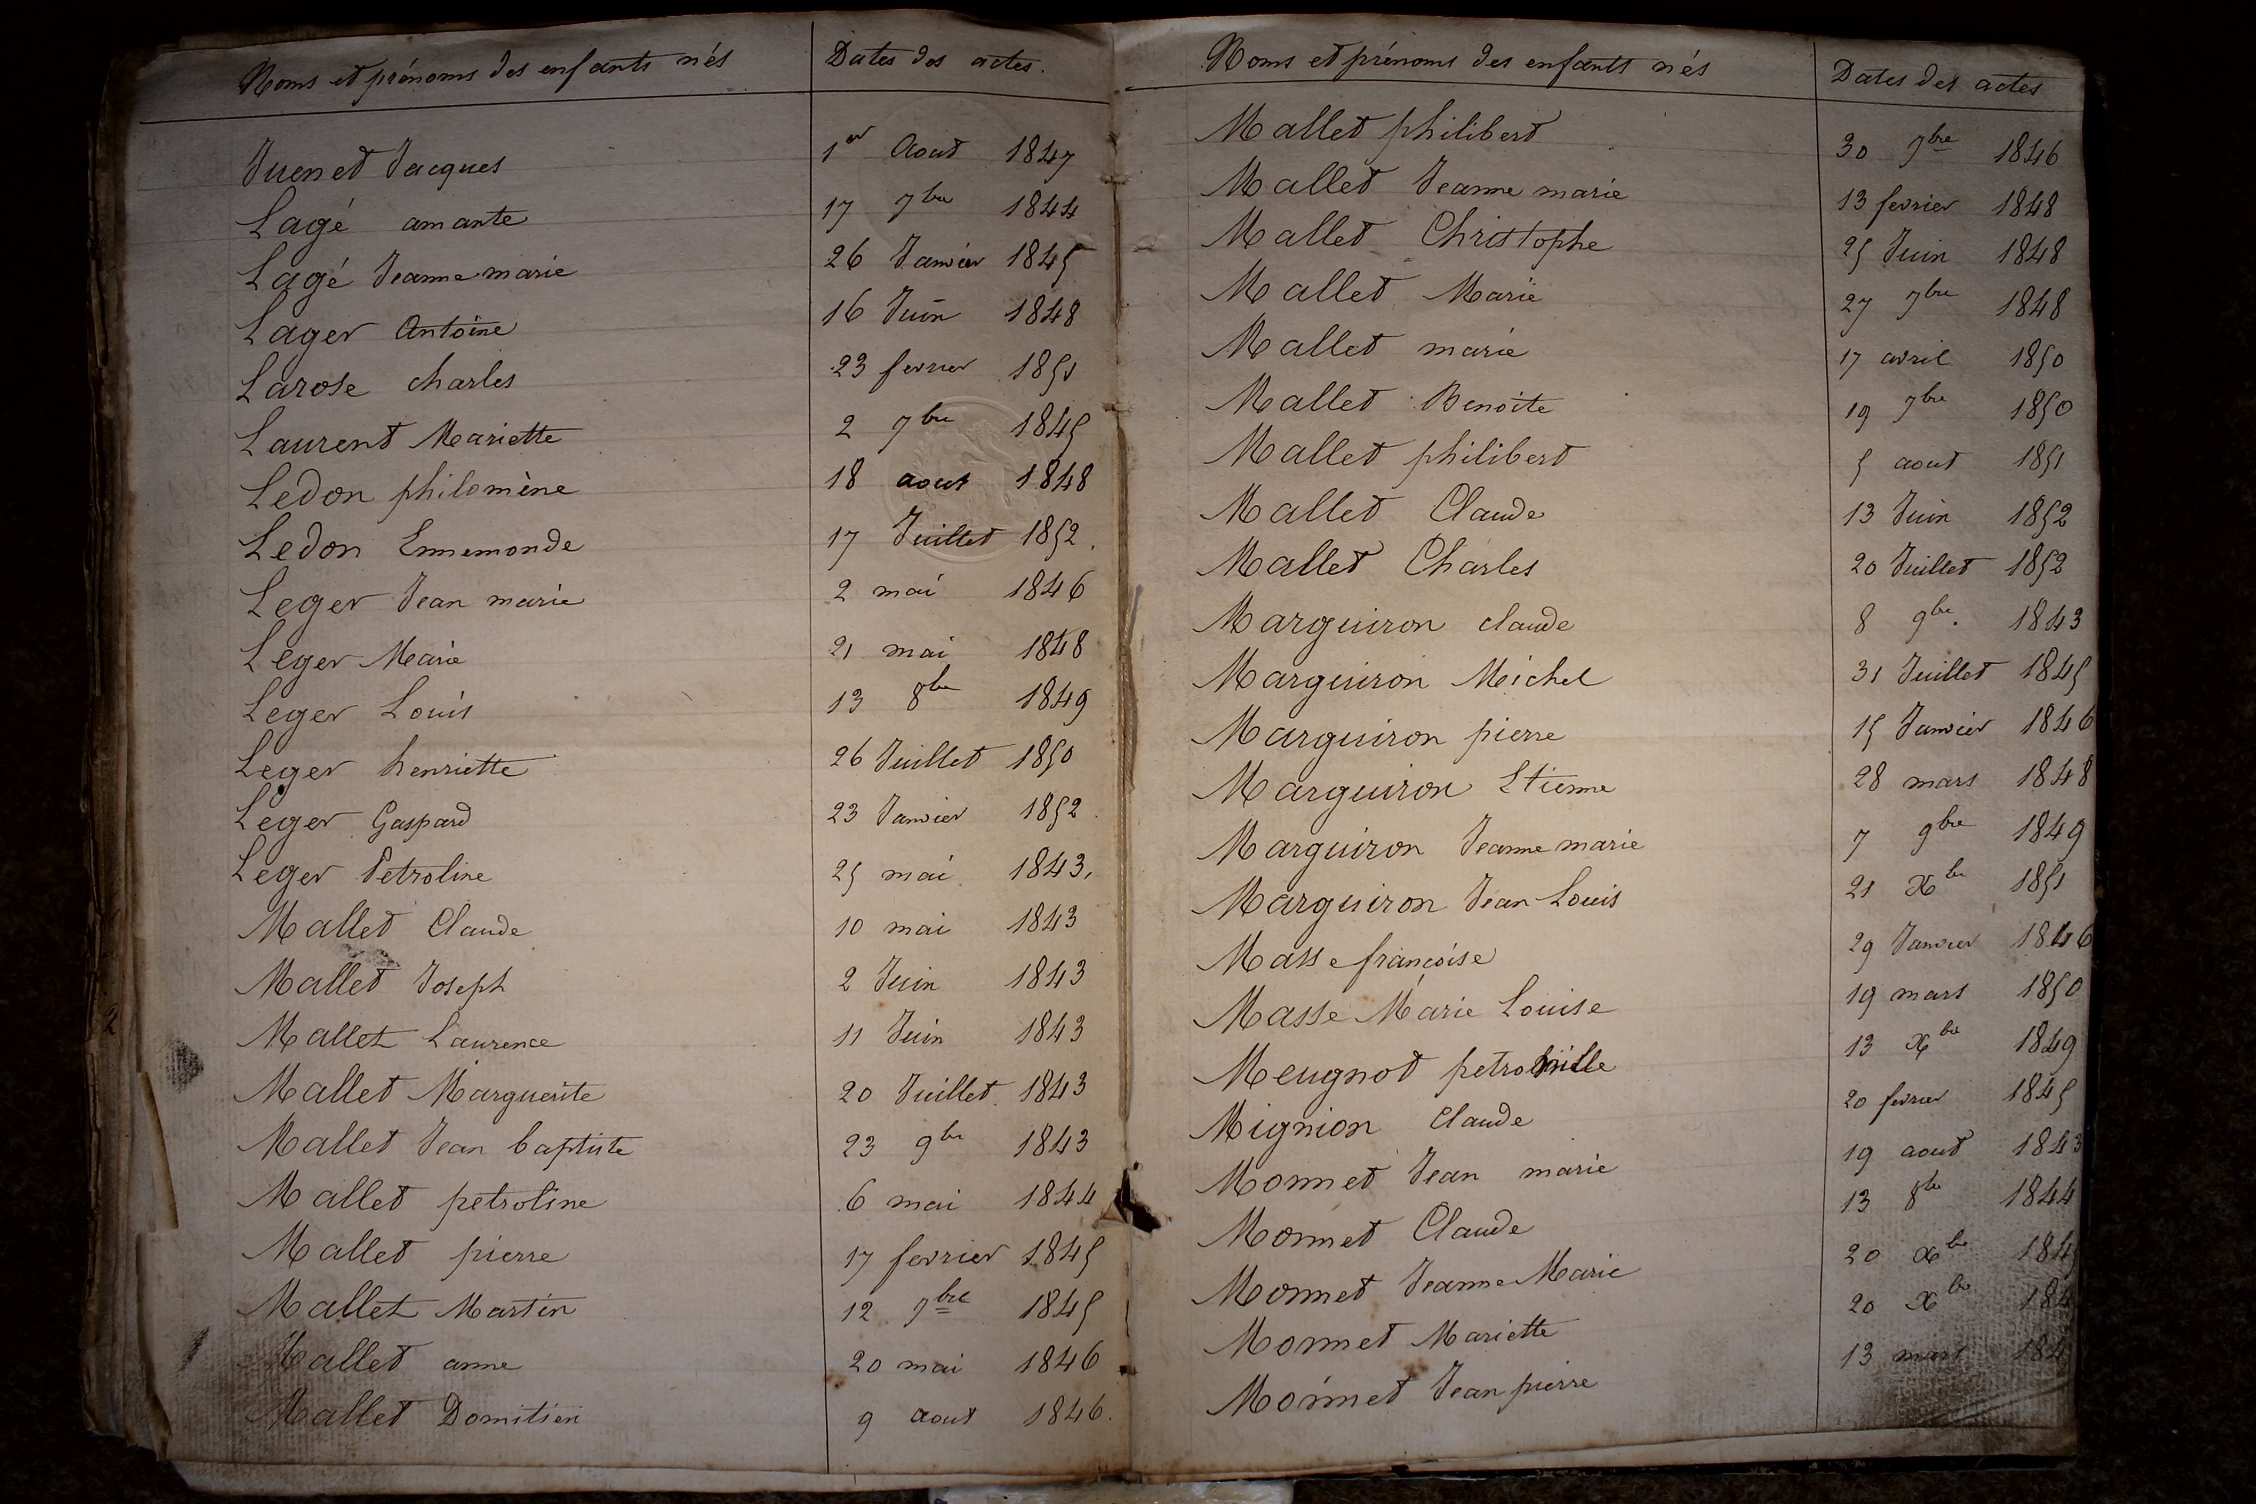 Noms et prénoms des enfants nés Dates des actes.
Juenet Jacques 1er Aout 1847
Lagé amante 17 7bre 1844
Lagé Jeanne marie 26 Janvier 1845
Lager Antoine 16 Juin 1848
Larose charles 23 fevrier 1851
Laurent Mariette 2 7bre 1845
Ledon philomène 18 aout 1848
Ledon Ennemonde 17 Juillet 1852.
Leger Jean marie 2 mai 1846
Leger Marie 21 mai 1848
Leger Louis 13 8bre 1849
Leger henriette 26 Juillet 1850
Leger Gaspard 23 Janvier 1852
Leger Petroline 25 mai 1843.
Mallet Claude 10 mai 1843
Mallet Joseph 2 Juin 1843
Mallet Laurence 11 Juin 1843
Mallet Marguerite 20 Juillet 1843
Mallet Jean baptiste 23 9bre 1843
Mallet petroline 6 mai 1844
Mallet pierre 17 fevrier 1845
Mallet Martin 12 7bre 1845
Mallet anne 20 mai 1846
Mallet Domitien 9 aout 1846.
Noms et prénoms des enfants nés Dates des actes
Mallet philibert 30 7bre 1846
Mallet Jeanne marie 13 fevrier 1848
Mallet Christophe 25 Juin 1848
Mallet Marie 27 7bre 1848
Mallet marie 17 avril 1850
Mallet Benoite 19 7bre 1850
Mallet philibert 5 aout 1851
Mallet Claude 13 Juin 1852
Mallet Charles 20 Juillet 1852
Marguiron claude 8 9bre. 1843
Marguiron Michel 31 Juillet 1845
Marguiron pierre 15 Janvier 1846
Marguiron Etienne 28 mars 1848
Marguiron Jeanne marie 7 9bre 1849
Marguiron Jean Louis 21 Xbre 1851
Masse françoise 29 Janvier 1846
Masse Marie Louise 19 mars 1850
Meugnot petronille 13 Xbre 1849
Mignion Claude 20 fevrier 1845
Monnet Jean marie 19 aout 1843
Monnet Claude 13 8bre 1844
Monnet Jeanne Marie 20 Xbre 1845
Monnet Mariette 20 Xbre 184
Monnet Jean pierre 13 mars 184